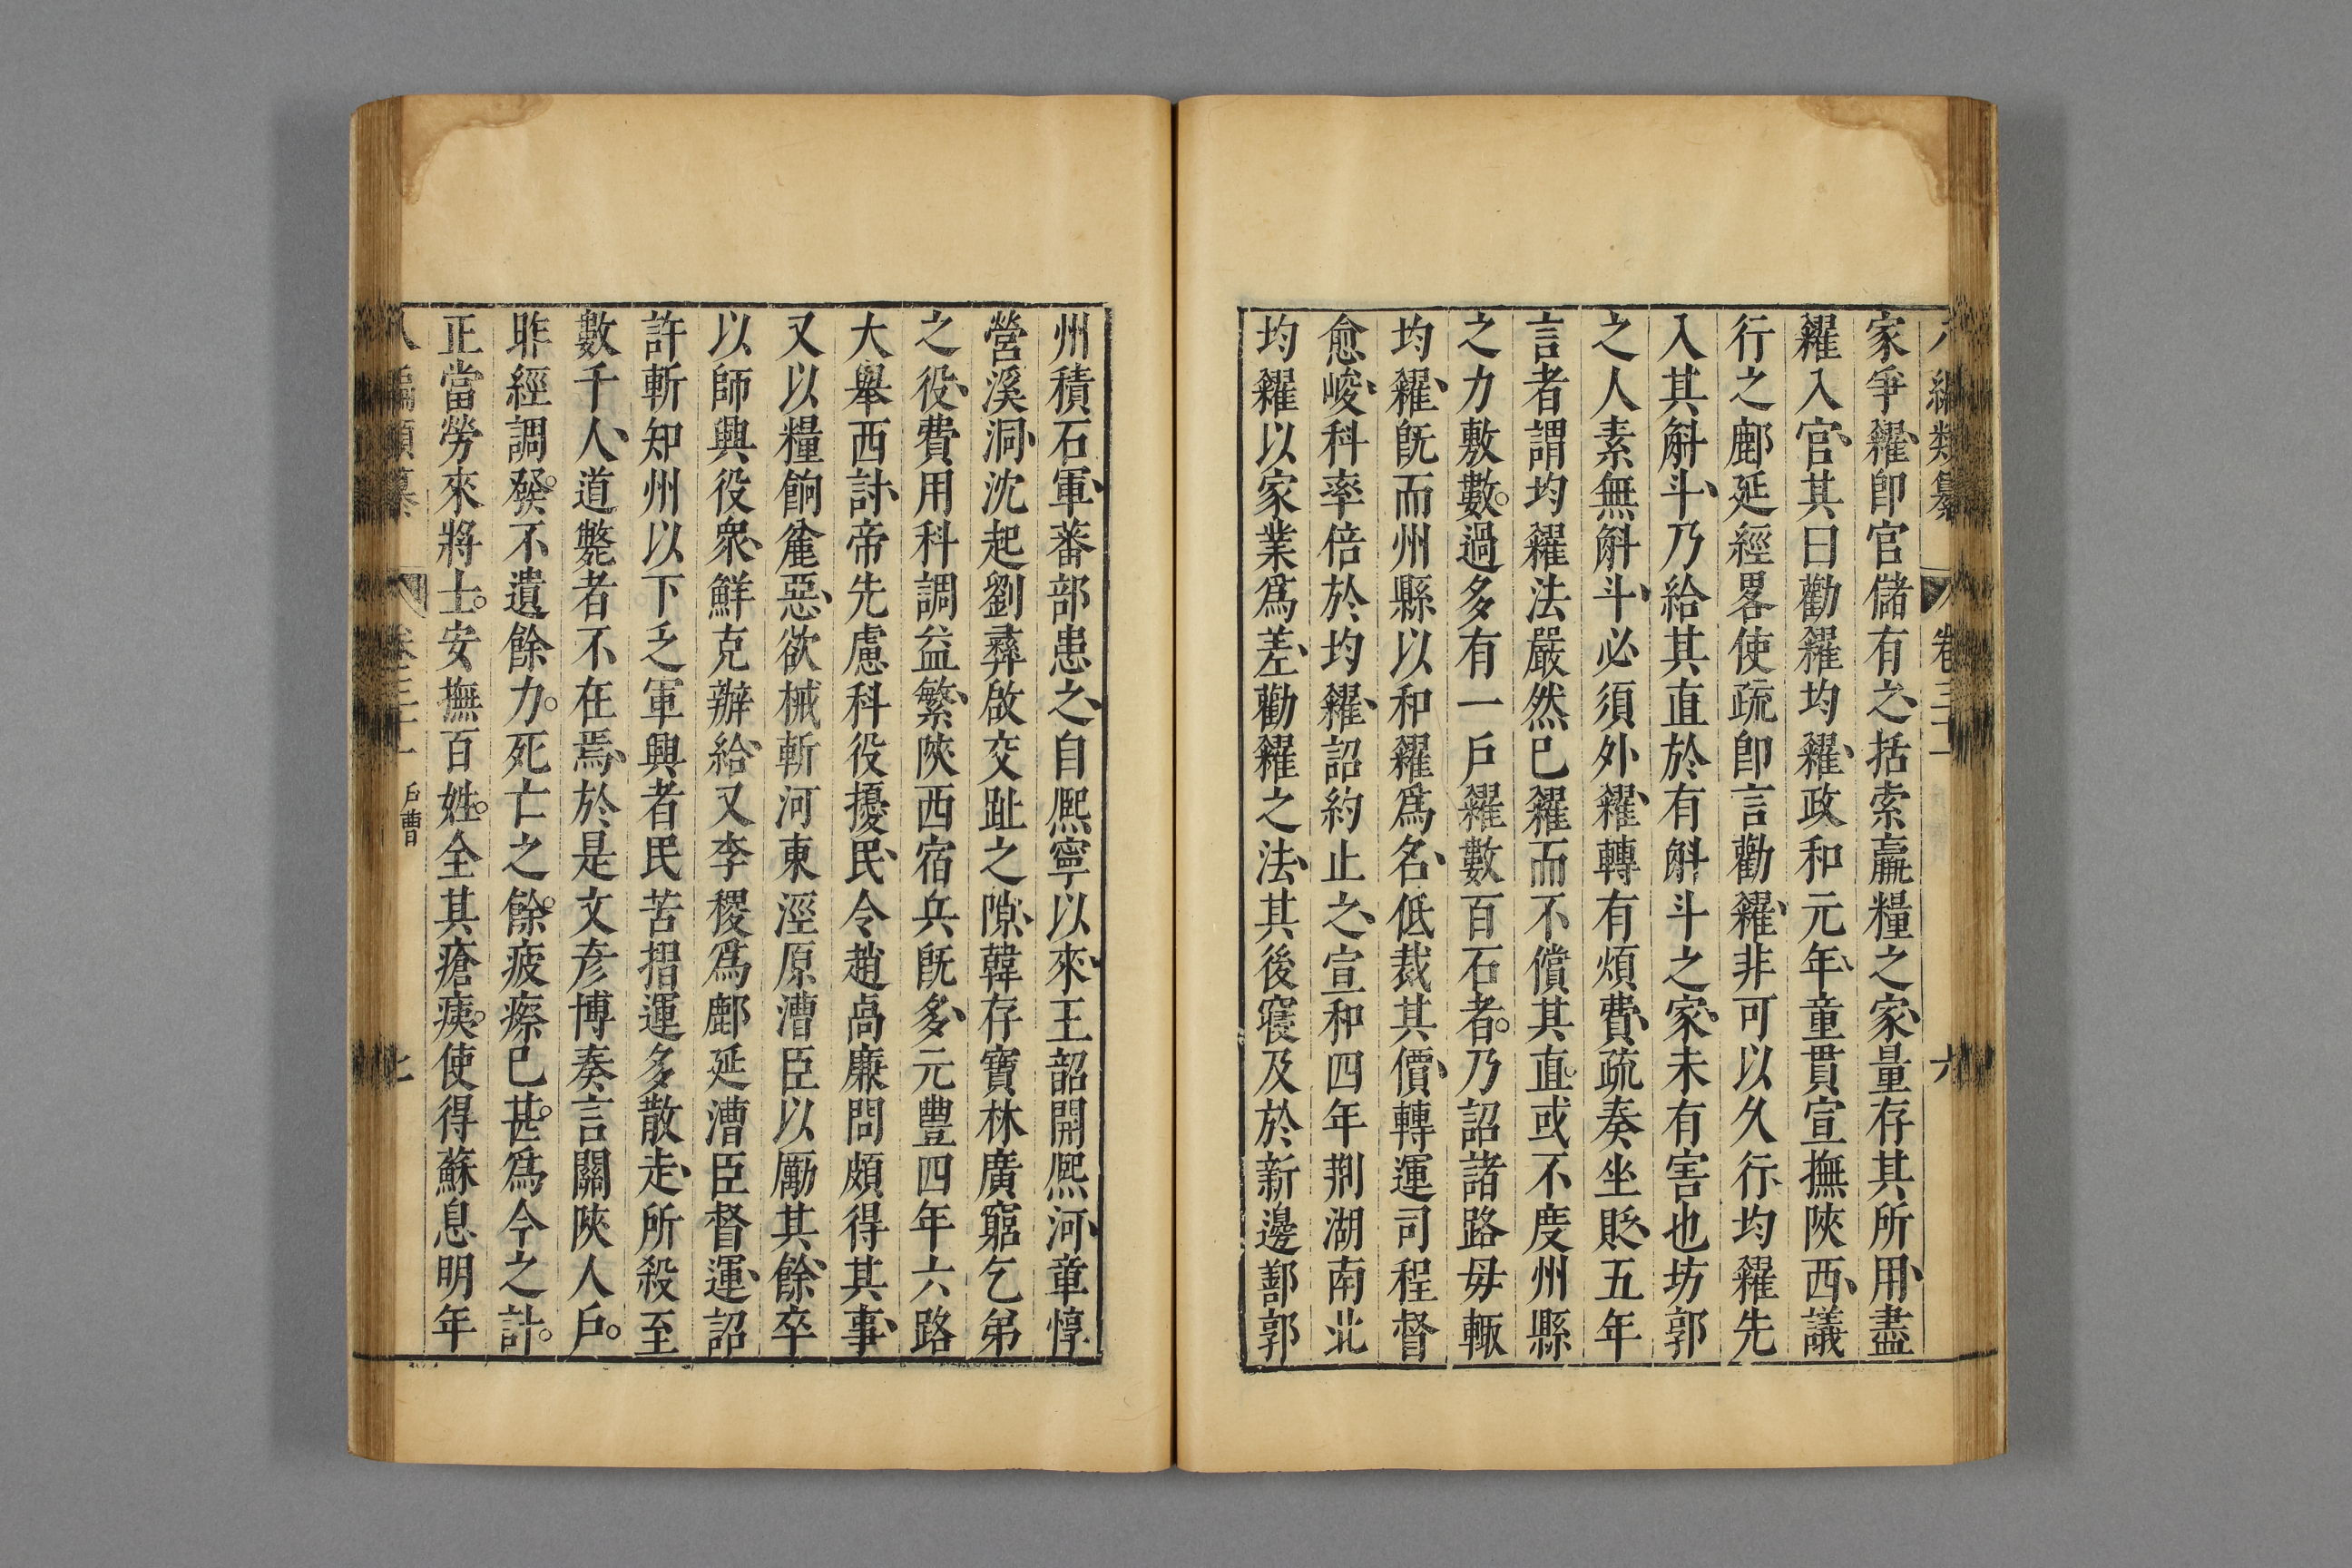 八編類纂 卷三十一 六
家爭糴卽官儲有之括索贏糧之家量存其所用盡
糴入官其曰勸糴均糴政和元年童貫宣撫陝西議
行之鄜延經畧使疏卽言勸糴非可以久行均糴先
入其斛斗乃給其直於有斛斗之家未有害也坊郭
之人素無斛斗必須外糴轉有煩費疏奏坐貶五年
言者謂均糴法嚴然已糴而不償其直或不度州縣
之力敷數過多有一戶糴數百石者乃詔諸路毋輙
均糴旣而州縣以和糴爲名低裁其價轉運司程督
愈峻科率倍於均糴詔約止之宣和四年荆湖南北
均糴以家業爲差勸糴之法其後寖及於新邊鄯郭
州積石軍蕃部患之自熙寧以來王韶開熙河章惇
營溪洞沈起劉彝啟交趾之隙韓存寶林廣窮乞弟
之役費用科調益繁陝西宿兵旣多元豐四年六路
大舉西討帝先慮科役擾民令趙卨廉問頗得其事
又以糧餉麄惡欲械斬河東涇原漕臣以勵其餘卒
以師興役衆鮮克辦給又李稷爲鄜延漕臣督運詔
許斬知州以下乏軍興者民苦摺運多散走所殺至
數千人道斃者不在焉於是文彦博奏言關陝人戶
昨經調發不遺餘力死亡之餘疲瘵已甚爲今之計
正當勞來將士安撫百姓全其瘡痍使得蘇息明年
八編類纂 卷三十一 戶曹 七